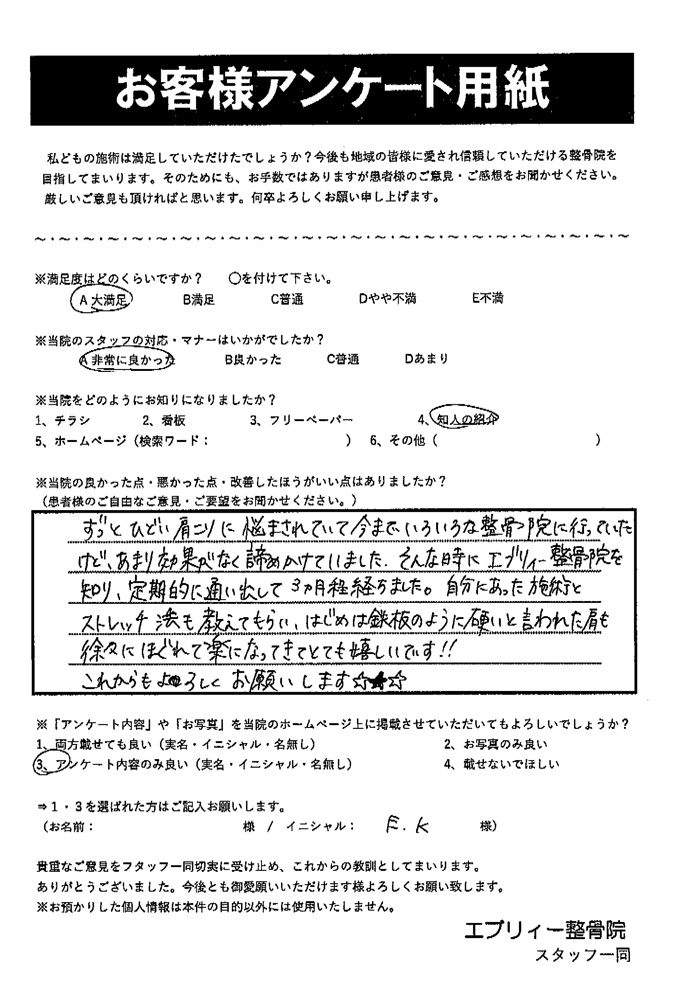 お客様アンケート用紙
私どもの施術は満足していただけたでしょうか？今後も地域の皆様に愛され信頼していただける整骨院を
目指してまいります。そのためにも、お手数ではありますが患者様のご意見・ご感想をお聞かせください。
厳しいご意見も頂ければと思います。何卒よろしくお願い申し上げます。
～・～・～・～・～・～・～・～・～・～・～・～・～・～・～・～・～・～・～・～・～・～・～・～・～
※満足度はどのくらいですか？　〇を付けて下さい。
A 大満足　B満足　C普通　Dやや不満　E不満
※当院のスタッフの対応・マナーはいかがでしたか？
A 非常に良かった　B良かった　C普通　Dあまり
※当院をどのようにお知りになりましたか？
1、チラシ　2、看板　3、フリーペーパー　4、知人の紹介
5、ホームページ（検索ワード：　　　）　6、その他（　　　）
※当院の良かった点・悪かった点・改善したほうがいい点はありましたか？
（患者様のご自由なご意見・ご要望をお聞かせください。）
ずっとひどい肩こりに悩まされていて今までいろいろな整骨院に行っていた
けど、あまり効果がなく諦めかけていました。そんな時にエブリィー整骨院を
知り、定期的に通い出して3ヵ月経経ちました。自分にあった施術と
ストレッチ法も教えてもらい、はじめは鉄板のように硬いと言われた肩も
徐々にほぐれて楽になってきてとても嬉しいです!!
これからもよろしくお願いします☆★☆
※「アンケート内容」や「お写真」を当院のホームページ上に掲載させていただいてもよろしいでしょうか？
1、両方載せても良い（実名・イニシャル・名無し）　2、お写真のみ良い
3、アンケート内容のみ良い（実名・イニシャル・名無し）　4、載せないでほしい
⇒1・3を選ばれた方はご記入お願いします。
（お名前：　　　様　/　イニシャル：　E.K　様）
貴重なご意見をフタッフ一同切実に受け止め、これからの教訓としてまいります。
ありがとうございました。今後とも御愛願いいただけます様よろしくお願い致します。
※お預かりした個人情報は本件の目的以外には使用いたしません。
エブリィー整骨院
スタッフ一同